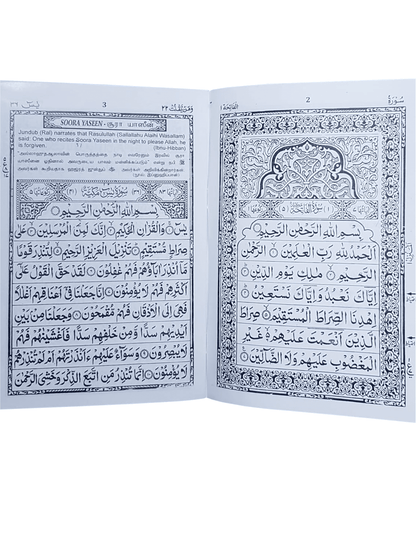 سُوْرَةُ
2
الفَاتِحَة ١
بِسْمِ اللهِ الرَّحْمٰنِ الرَّحِيْمِ
اَلْحَمْدُ لِلّٰهِ رَبِّ الْعٰلَمِيْنَ ۙ الرَّحْمٰنِ
الرَّحِيْمِ ۙ مٰلِكِ يَوْمِ الدِّيْنِ ۙ
اِيَّاكَ نَعْبُدُ وَاِيَّاكَ نَسْتَعِيْنُ ۙ
اِهْدِنَا الصِّرَاطَ الْمُسْتَقِيْمَ ۙ صِرَاطَ
الَّذِيْنَ اَنْعَمْتَ عَلَيْهِمْ غَيْرِ
الْمَغْضُوْبِ عَلَيْهِمْ وَلَا الضَّآلِّيْنَ
وَمَنْ يَّقْنُتْ ٢٢
3
يٰسٓ ٣٦
SOORA YASEEN - சூரா யாஸீன்
Jundub (Ral) narrates that Rasulullah (Sallallahu Alaihi Wasallam)
said: One who recites Soora Yaseen in the night to please Allah, he
is forgiven. (Ibnu Hibban)
بِسْمِ اللهِ الرَّحْمٰنِ الرَّحِيْمِ
يٰسٓ ۚ وَالْقُرْاٰنِ الْحَكِيْمِ ۙ اِنَّكَ لَمِنَ الْمُرْسَلِيْنَ ۙ عَلٰى
صِرَاطٍ مُّسْتَقِيْمٍ ۙ تَنْزِيْلَ الْعَزِيْزِ الرَّحِيْمِ ۙ لِتُنْذِرَ قَوْمًا
مَّآ اُنْذِرَ اٰبَآؤُهُمْ فَهُمْ غٰفِلُوْنَ لَقَدْ حَقَّ الْقَوْلُ عَلٰٓى
اَكْثَرِهِمْ فَهُمْ لَا يُؤْمِنُوْنَ اِنَّا جَعَلْنَا فِيْٓ اَعْنَاقِهِمْ اَغْلٰلًا
فَهِيَ اِلَى الْاَذْقَانِ فَهُمْ مُّقْمَحُوْنَ وَجَعَلْنَا مِنْۢ بَيْنِ
اَيْدِيْهِمْ سَدًّا وَّمِنْ خَلْفِهِمْ سَدًّا فَاَغْشَيْنٰهُمْ فَهُمْ
لَا يُبْصِرُوْنَ وَسَوَآءٌ عَلَيْهِمْ ءَاَنْذَرْتَهُمْ اَمْ لَمْ تُنْذِرْهُمْ
لَا يُؤْمِنُوْنَ اِنَّمَا تُنْذِرُ مَنِ اتَّبَعَ الذِّكْرَ وَخَشِيَ الرَّحْمٰنَ